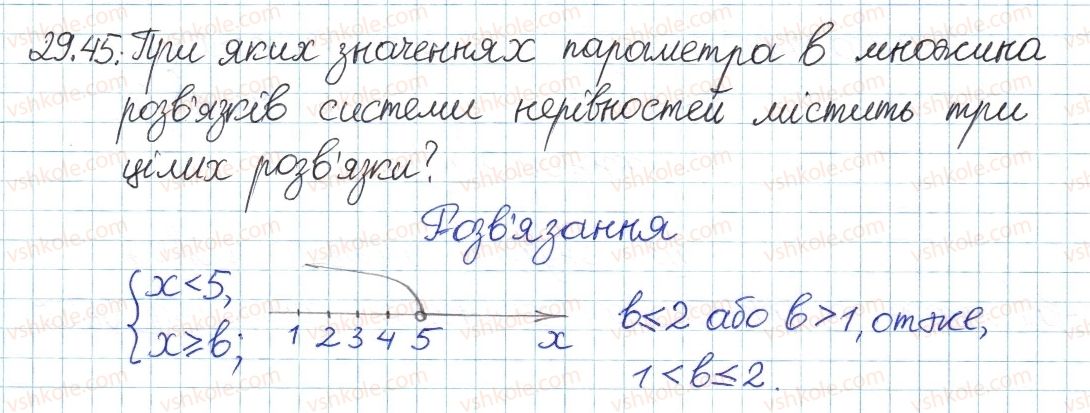 29.45. При яких значеннях параметра b множина
розв'язків системи нерівностей містить три
цілих розв'язки?
Розв'язання
{x<5,
x≥b;
1 2 3 4 5 x
b≤2 або b>1, отже,
1<b≤2.
vshkole.com